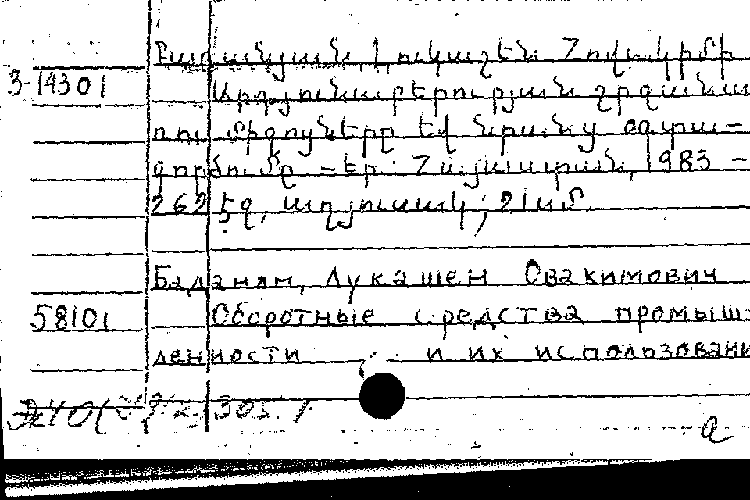 Բադանյան, Ղուկաշեն Հովակիմի
3-14301 Արդյունաբերության շրջանա
ռու միջոցները եվ նրանց օգտա-
գործումը -Եր. Հայաստան, 1983 -
262 էջ, աղյուսակ; 21սմ.
Баданян, Лукашен Овакимович
58101 Оборотные средства промыш-
ленности и их использовани
a